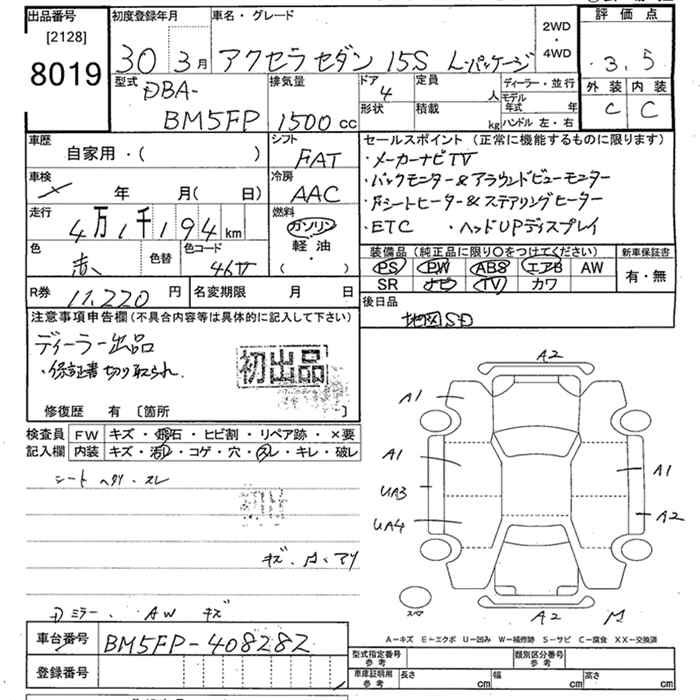 出品番号 初度登録年月 車名・グレード 評価点
[2128]
8019
30 3月 アクセラセダン 15S L-パッケージ
2WD
・
4WD
3.5
外装 内装
C C
型式 DBA-
BM5FP
排気量
1500cc
ドア 4
形状
定員 人
積載 kg
ディーラー・並行
モデル年式 年
ハンドル 左・右
車歴
自家用・( )
シフト
FAT
車検 年 月( 日)
冷房
AAC
走行 4万1千194km
燃料
ガソリン
軽油・
( )
色 赤 色替 色コード 46V
R券 11,220円 名変期限 月 日
セールスポイント (正常に機能するものに限ります)
・メーカーナビTV
・バックモニター&アラウンドビューモニター
・Fシートヒーター&ステアリングヒーター
・ETC ・ヘッドUPディスプレイ
装備品 (純正品に限り○をつけてください) 新車保証書
PS PW ABS エアB AW 有・無
SR ナビ TV カワ
後日品
地図SD
注意事項申告欄(不具合内容等は具体的に記入して下さい)
ディーラー出品
・保証書切り取られ.
初出品
修復歴 有 [箇所
検査員 FW キズ・飛石・ヒビ割・リペア跡・×要
記入欄 内装 キズ・汚レ・コゲ・穴・スレ・キレ・破レ
シートヘタリ・スレ
A2
A1
A1
UA3
UA4
A1
A2
A2
スペア
A-キズ E-エクボ U-凹み W-補修跡 S-サビ C-腐食 XX-交換済
ミラー. AW キズ
車台番号 BM5FP-408282
登録番号
型式指定番号 参考 類別区分番号 参考
車庫証明用 参考 長さ cm 幅 cm 高さ cm